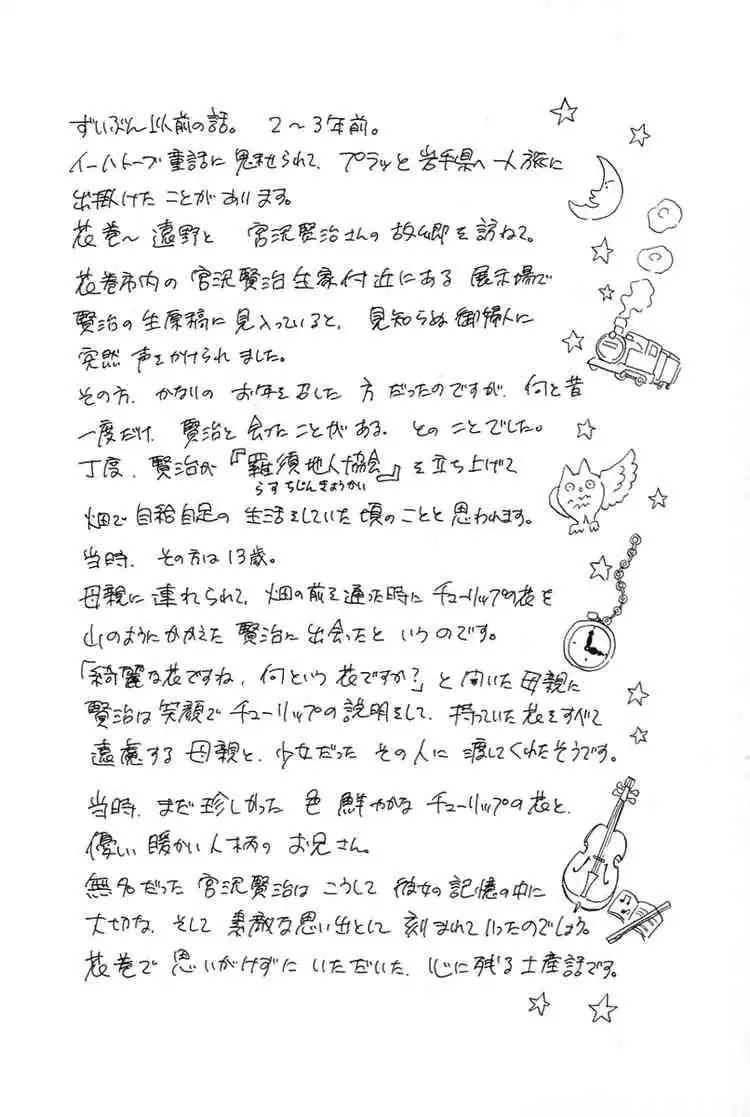 ずいぶん以前の話。 2〜3年前。
イーハトーブ童話に魅せられて、プラッと岩手県へ一人旅に
出掛けたことがあります。
花巻〜遠野と 宮沢賢治さんの故郷を訪ねて。
花巻市内の宮沢賢治生家付近にある展示場で
賢治の生原稿に見入っていると、見知らぬ御婦人に
突然声をかけられました。
その方、かなりのお年を召した方だったのですが、何と昔
一度だけ、賢治と会ったことがある、とのことでした。
丁度、賢治が『羅須地人協会』を立ち上げて
らすちじんきょうかい
畑で自給自足の生活をしていた頃のことと思われます。
当時、その方は13歳。
母親に連れられて、畑の前を通った時にチューリップの花を
山のようにかかえた賢治に出会ったというのです。
「綺麗な花ですね、何という花ですか？」と聞いた母親に
賢治は笑顔でチューリップの説明をして、持っていた花をすべて
遠慮する母親と、少女だったその人に渡してくれたそうです。
当時、まだ珍しかった色鮮やかなチューリップの花と、
優しい暖かい人柄のお兄さん。
無名だった宮沢賢治はこうして彼女の記憶の中に
大切な、そして素敵な思い出として刻まれていったのでしょう。
花巻で思いがけずにいただいた、心に残る土産話です。